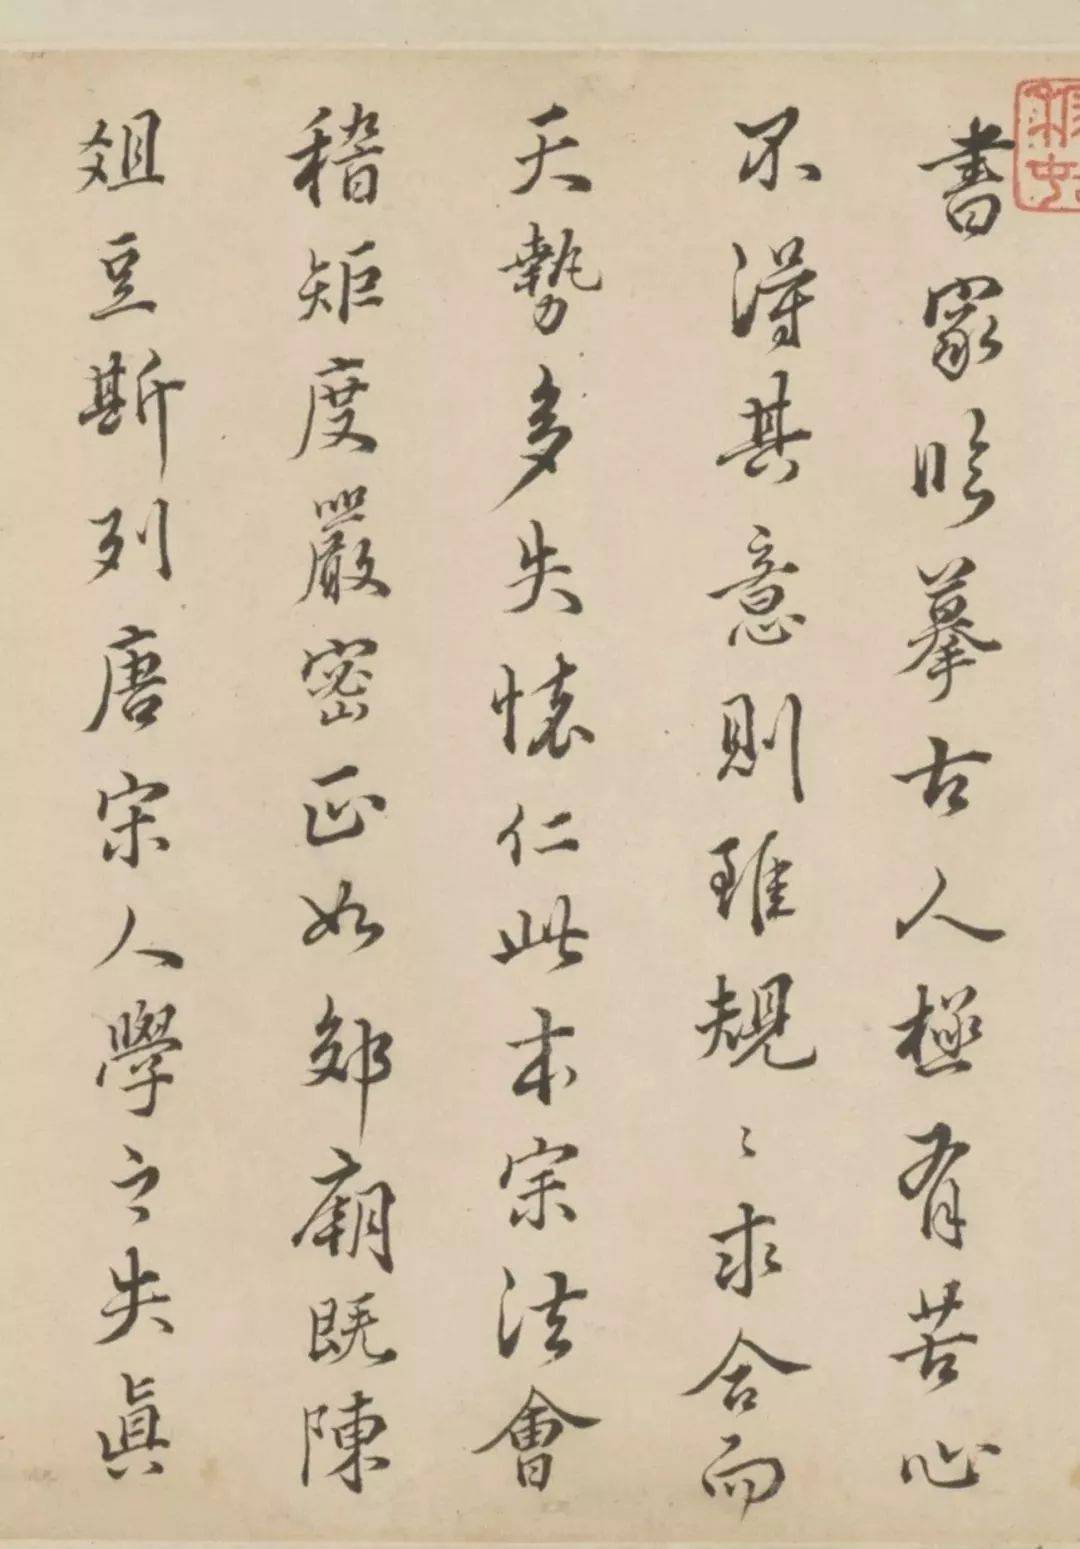 書家臨摹古人極有苦心
不得其意則雖規〻求合而
天勢多失懷仁此本宗法會
稽矩度嚴密正如郊廟既陳
俎豆斯列唐宋人學之失眞